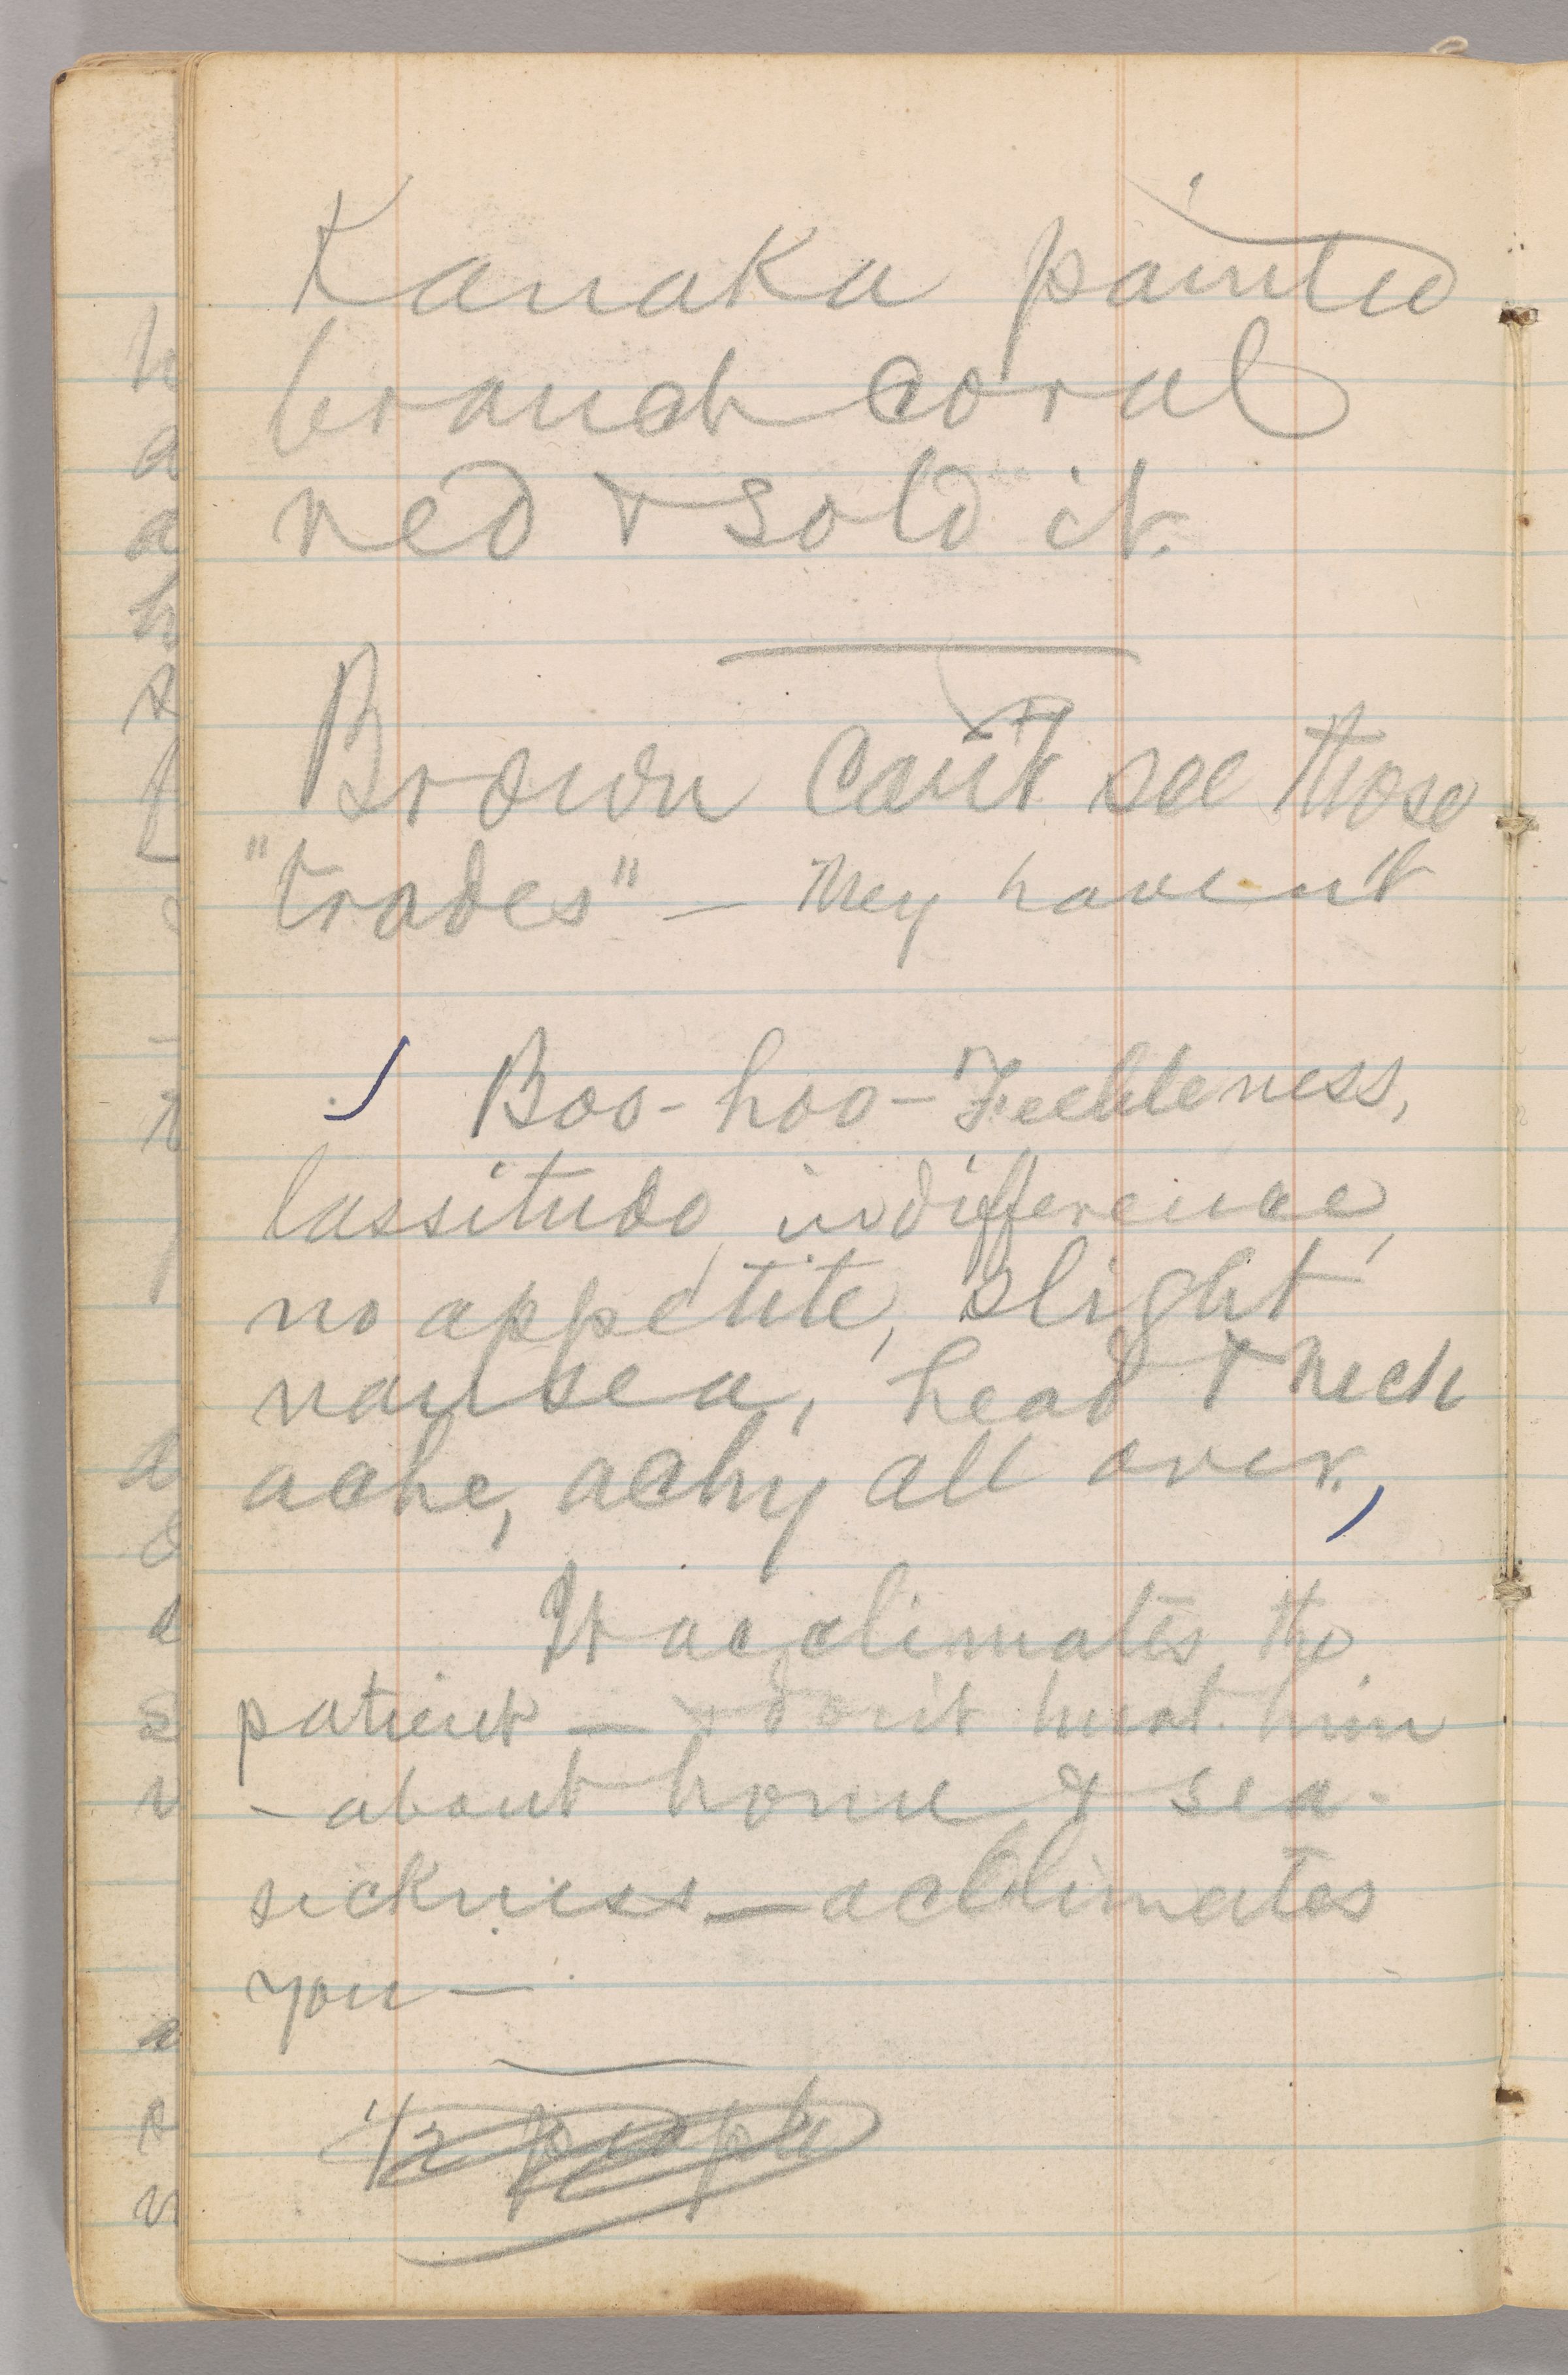 Kanaka painted
branch coral
red & sold it.
Brown can't see those
"trades" — they haven't
Boo-hoo — Feebleness,
lassitude, indifference,
no appetite, slight
nausea, head & neck
ache, achy all over.
It acclimates the
patient — & don't hurt him
— about home & sea-
sickness — acclimates
you —
1/2 people